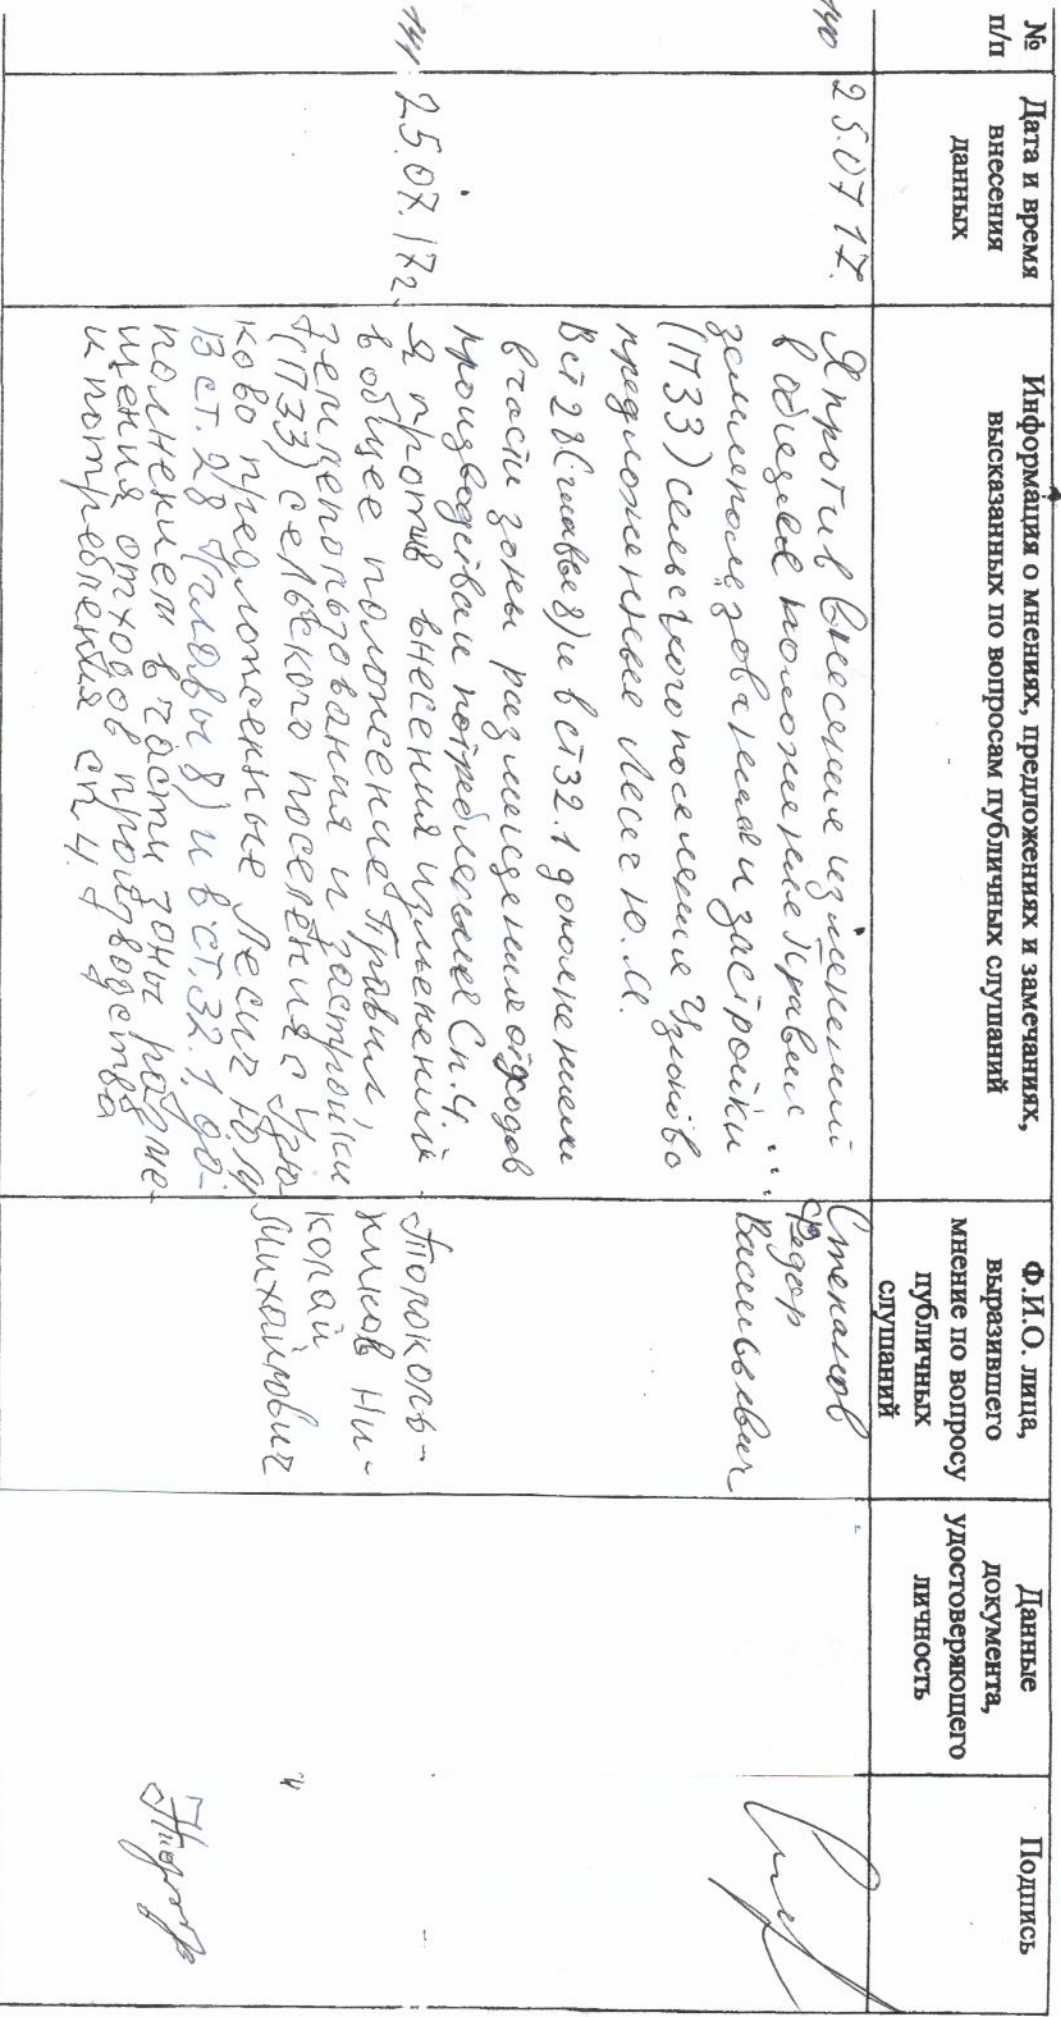 № п/п
Дата и время внесения данных
Информация о мнениях, предложениях и замечаниях,
высказанных по вопросам публичных слушаний
Ф.И.О. лица,
выразившего
мнение по вопросу
публичных
слушаний
Данные
документа,
удостоверяющего
личность
Подпись
140
25.07 17.
Я против внесение изменений
в общее положение Правил
землепользования и застройки
(ПЗЗ) сельского поселение Узюково
предложенные Лесеч Ю.М.
В ст 28 (главы 8) и в ст 32.1 дополнением
в части зоны размещения отходов
производства и потребления Сп.4.
Степанов
Федор
Васильевич
141
25.07.17г.
Я против внесения изменений
в общее положение Правил
землепользования и застройки
(ПЗЗ) сельского поселения с Узю-
ково предложенные Лесич Ю М
В ст. 28 (главы 8) и в ст. 32.1, до-
полнением в части зоны разме-
щения отходов производства
и потребления сп 4
Колай
Михайлович